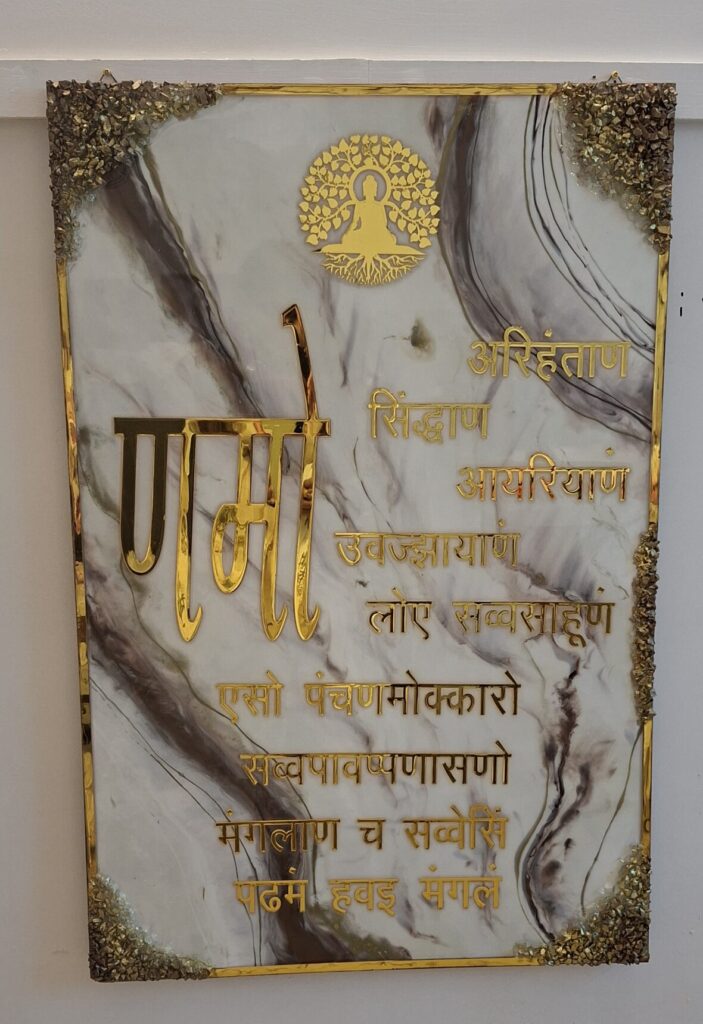 णमो
अरिहंताण
सिंद्धाण
आयरियाणं
उवज्झायाणं
लोए सव्वसाहूणं
एसो पंचणमोक्कारो
सव्वपावप्पणासणो
मंगलाण च सव्वेसिं
पढमं हवइ मंगलं